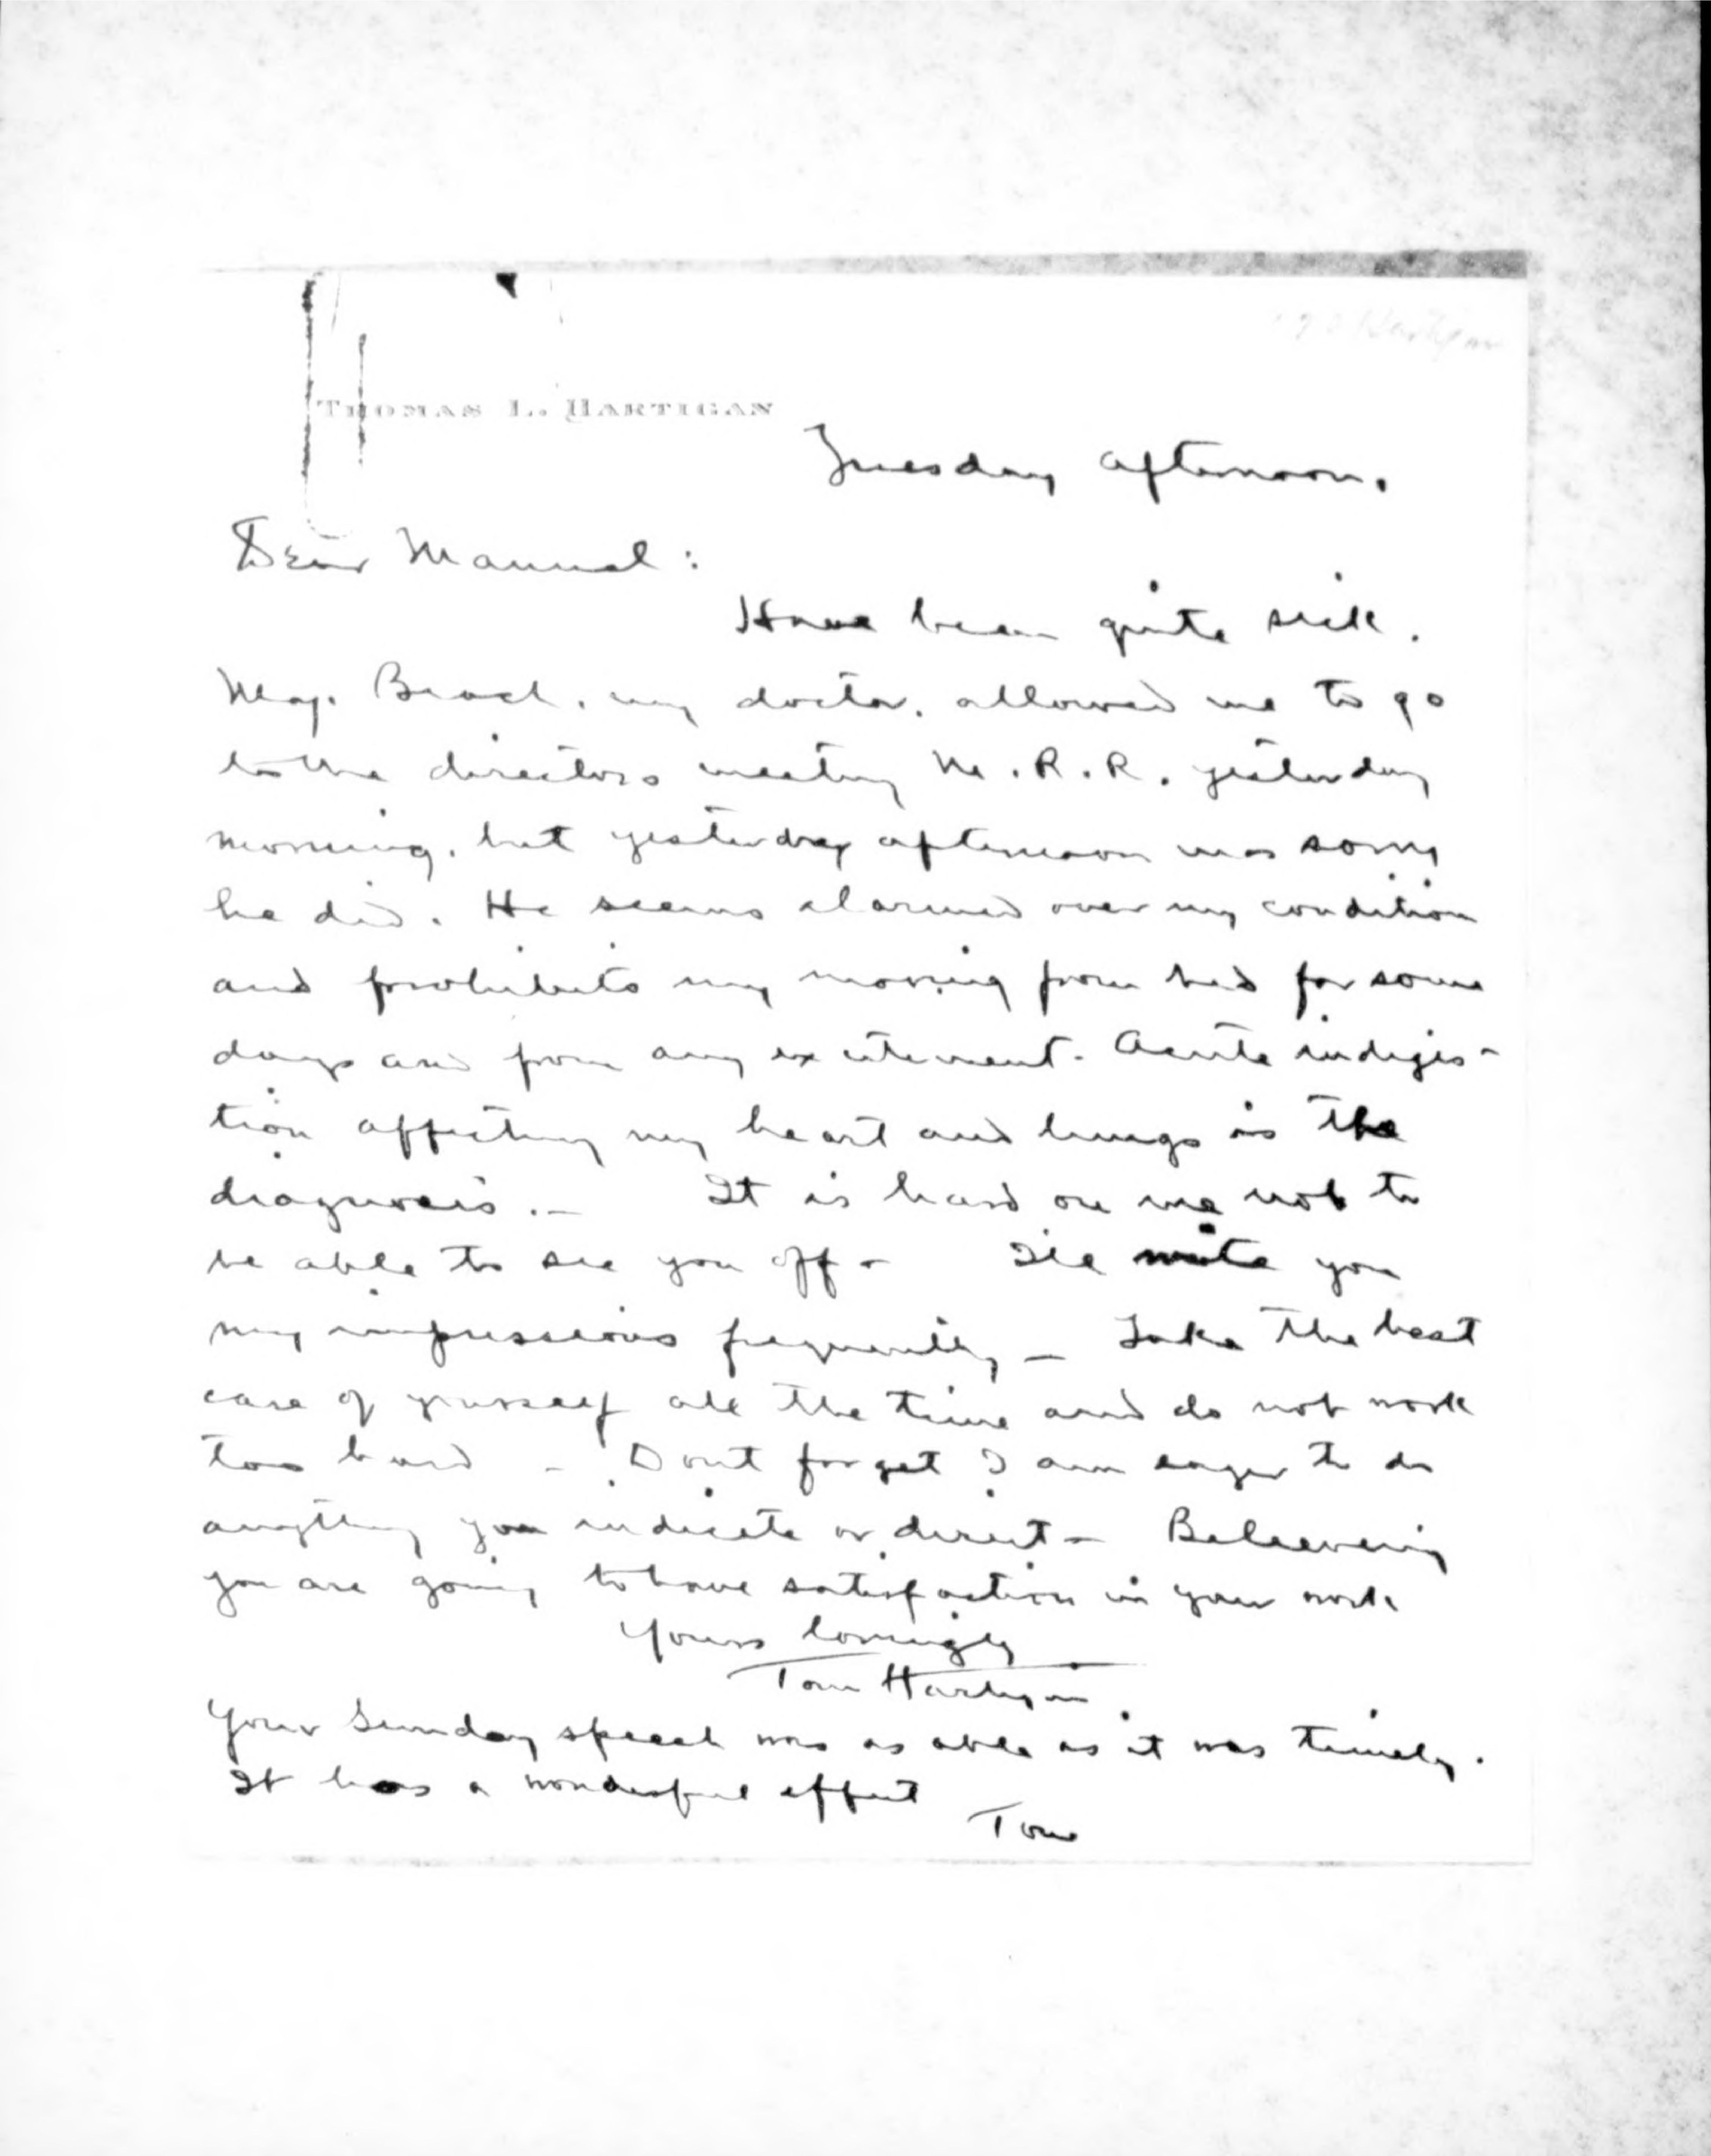 Hartigan
THOMAS L. HARTIGAN
Tuesday afternoon.
Dear Manuel:
Have been quite sick.
Maj. Beach, my doctor, allowed me to go
to the directors meeting M.R.R. yesterday
morning, but yesterday afternoon was sorry
he did. He seems alarmed over my condition
and prohibits my moving from bed for some
days and from any excitement. Acute indiges-
tion affecting my heart and lungs is the
diagnosis. — It is hard on me not to
be able to see you off — I'll write you
my impressions frequently — Take the best
care of yourself all the time and do not work
too hard — Dont forget I am eager to do
anything you indicate or direct — Believing
you are going to have satisfaction in your work
Yours lovingly
Tom Hartigan
Your Sunday speech was as able as it was timely.
It has a wonderful effect
Tom